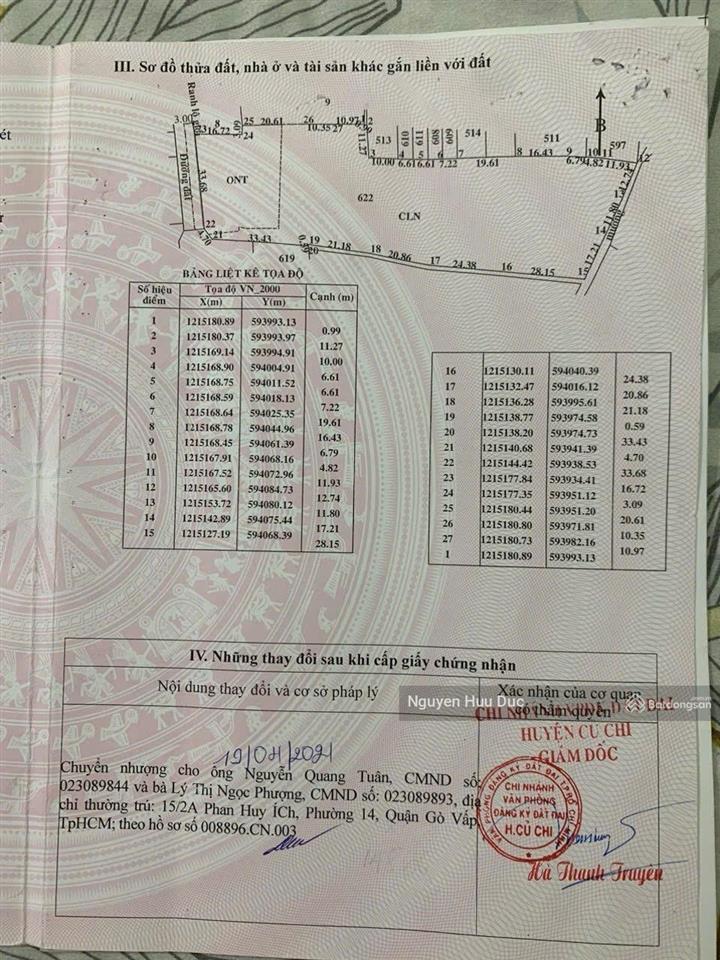 III. Sơ đồ thửa đất, nhà ở và tài sản khác gắn liền với đất
3.00
8
16.72
25
20.61
3.09
24
26
9
10.35
27
10.97
1
2
11.27
513
610
611
608
609
514
511
597
3
4
5
6
7
8
9
10
11
12
10.00
6.61
6.61
7.22
19.61
16.43
6.79
4.82
11.93
B
12.74
11.80
14
17.21
mương
15
Đường đất
33.68
ONT
622
CLN
22
4.70
21
33.43
619
20
19
21.18
18
20.86
17
24.38
16
28.15
BẢNG LIỆT KÊ TỌA ĐỘ
Số hiệu điểm
Tọa độ VN_2000
Cạnh (m)
X(m)
Y(m)
1 1215180.89 593993.13
0.99
2 1215180.37 593993.97
11.27
3 1215169.14 593994.91
10.00
4 1215168.90 594004.91
6.61
5 1215168.75 594011.52
6.61
6 1215168.59 594018.13
7.22
7 1215168.64 594025.35
19.61
8 1215168.78 594044.96
16.43
9 1215168.45 594061.39
6.79
10 1215167.91 594068.16
4.82
11 1215167.52 594072.96
11.93
12 1215165.60 594084.73
12.74
13 1215153.72 594080.12
11.80
14 1215142.89 594075.44
17.21
15 1215127.19 594068.39
28.15
16 1215130.11 594040.39
24.38
17 1215132.47 594016.12
20.86
18 1215136.28 593995.61
21.18
19 1215138.77 593974.58
0.59
20 1215138.20 593974.73
33.43
21 1215140.68 593941.39
4.70
22 1215144.42 593938.53
33.68
23 1215177.84 593934.41
16.72
24 1215177.35 593951.12
3.09
25 1215180.44 593951.20
20.61
26 1215180.80 593971.81
10.35
27 1215180.73 593982.16
10.97
1 1215180.89 593993.13
IV. Những thay đổi sau khi cấp giấy chứng nhận
Nội dung thay đổi và cơ sở pháp lý
Xác nhận của cơ quan
có thẩm quyền
Nguyen Huu Duc
Batdongsan
HUYỆN CỦ CHI
GIÁM ĐỐC
19/04/2021
Chuyển nhượng cho ông Nguyễn Quang Tuân, CMND số:
023089844 và bà Lý Thị Ngọc Phượng, CMND số: 023089893, địa
chỉ thường trú: 15/2A Phan Huy ÍCh, Phường 14, Quận Gò Vấp
TpHCM; theo hồ sơ số 008896.CN.003
VĂN PHÒNG ĐĂNG KÝ ĐẤT ĐAI TP.HỒ CHÍ MINH
CHI NHÁNH
VĂN PHÒNG
ĐĂNG KÝ ĐẤT ĐAI
H.CỦ CHI
Hà Thanh Truyên